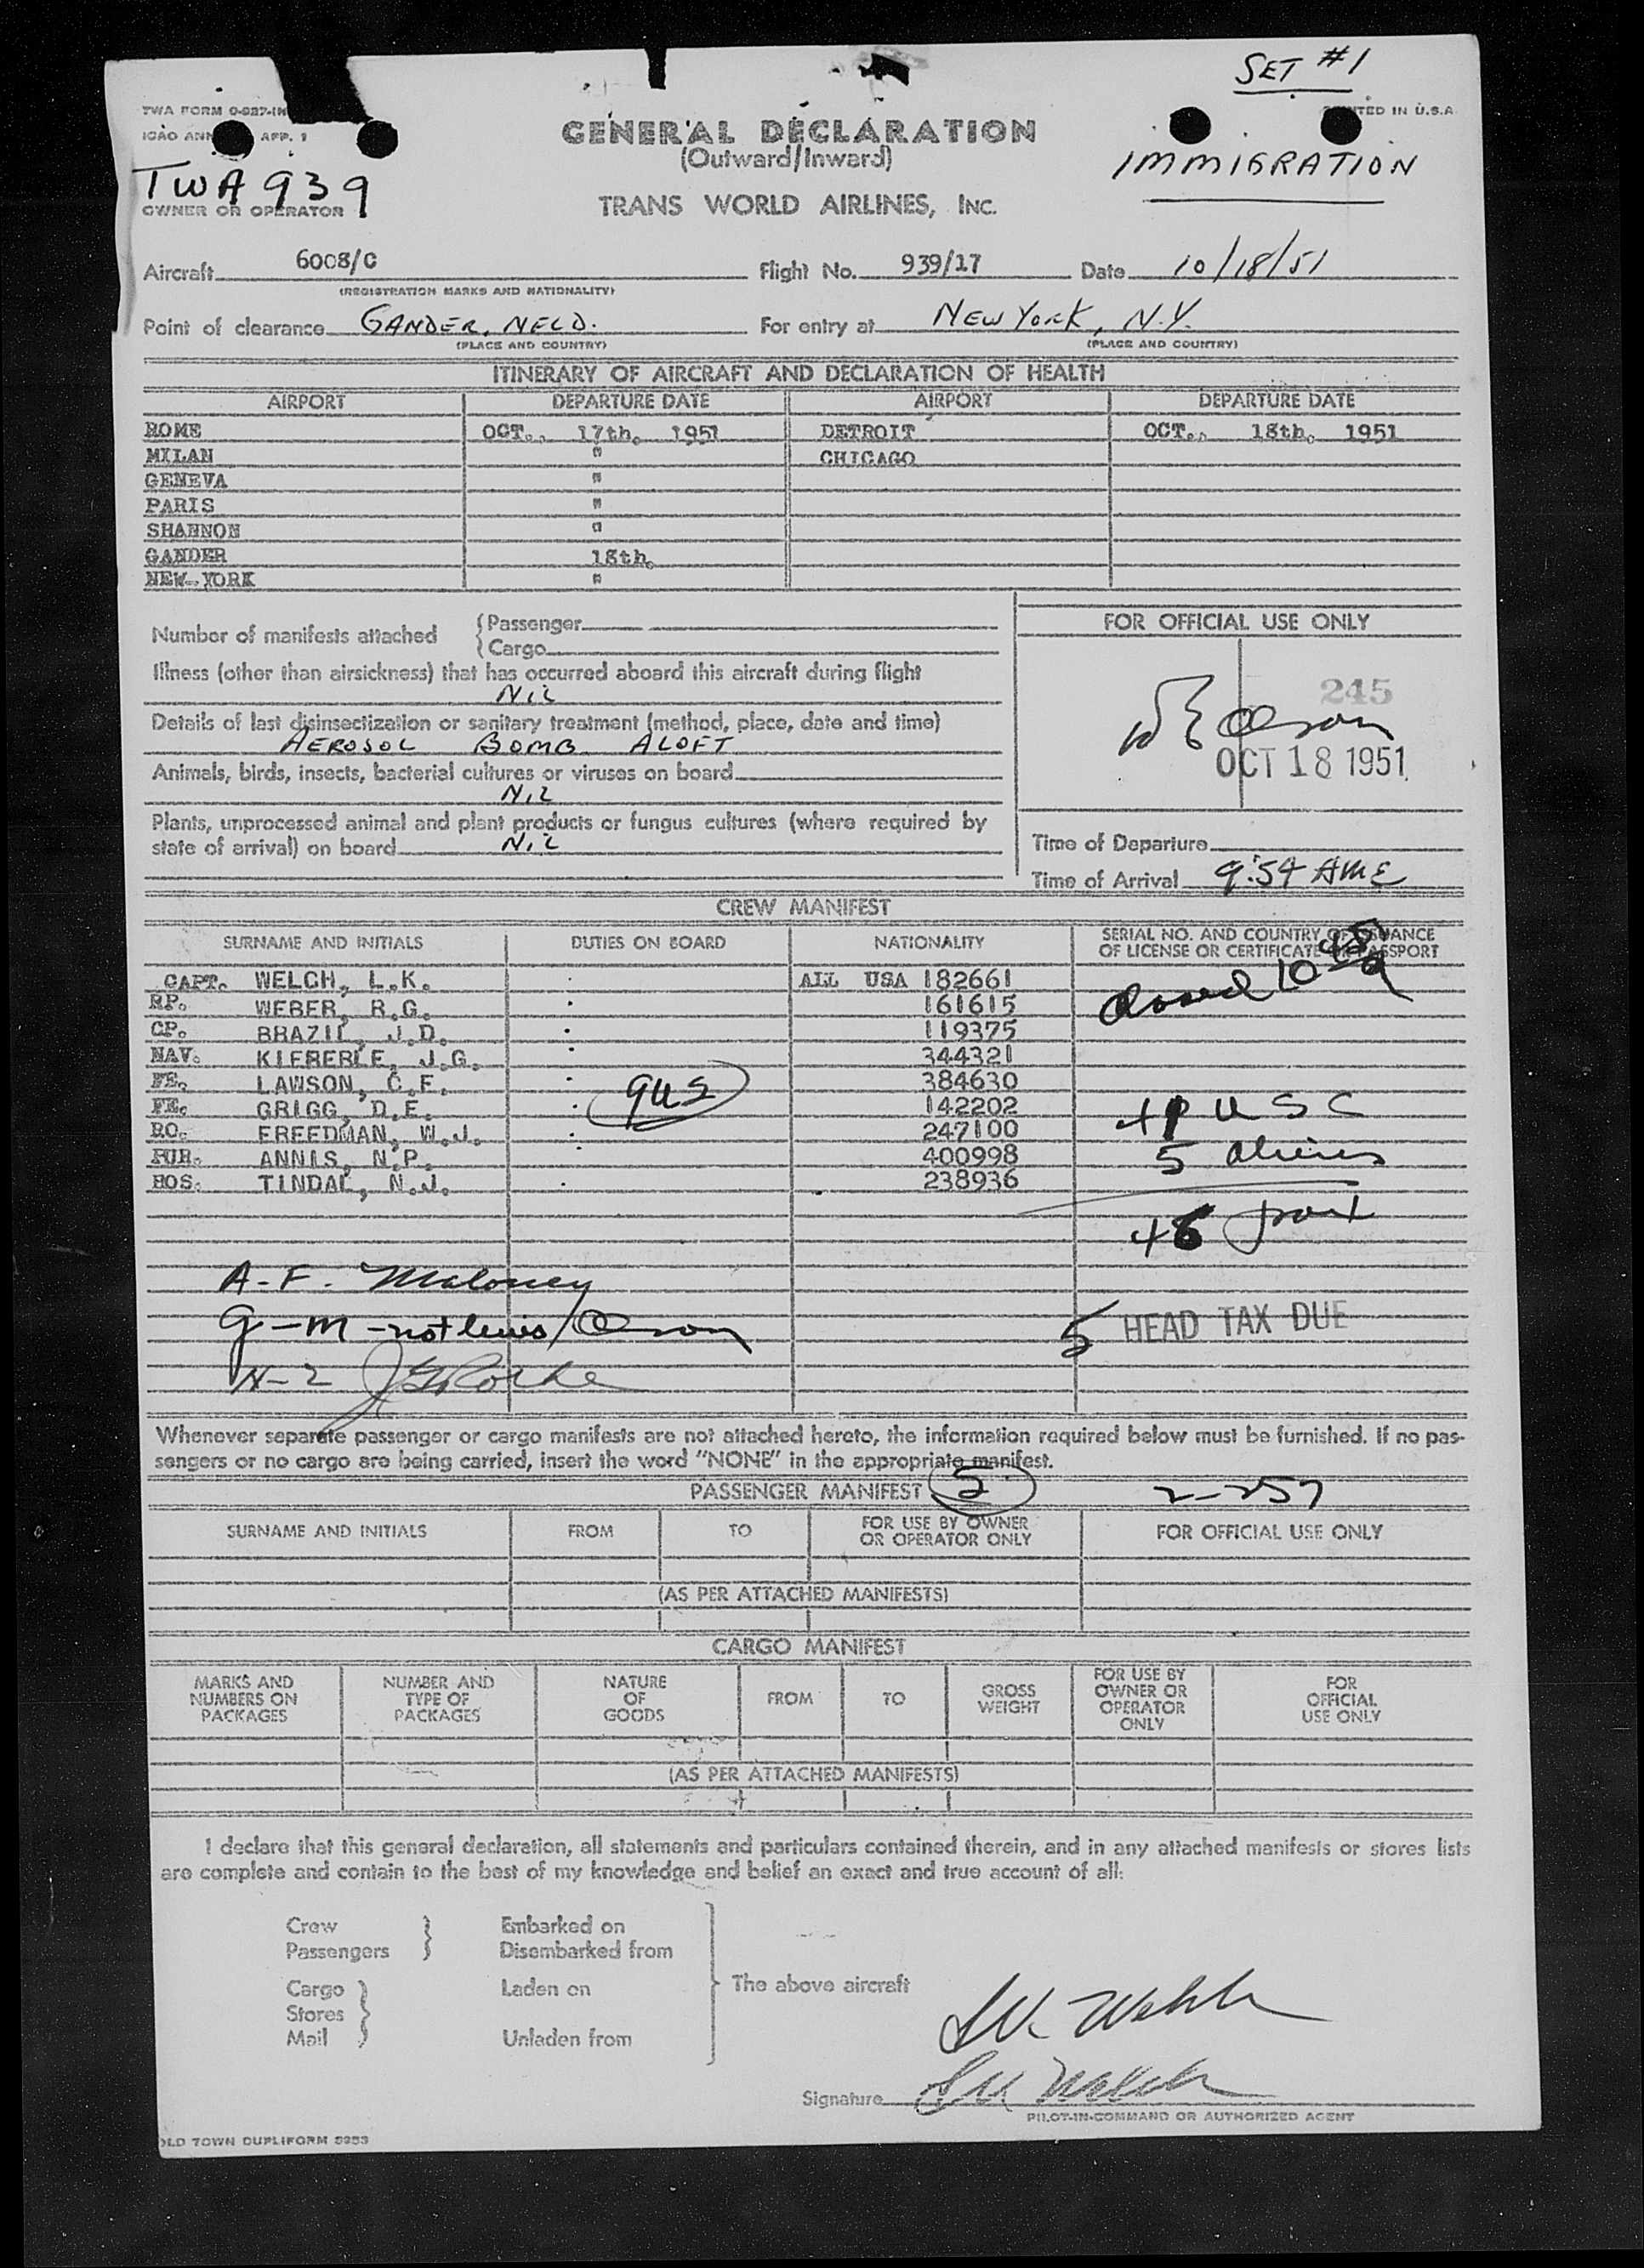 SET #1
TWA FORM 0-927-IN
PRINTED IN U.S.A.
ICAO ANN APP. 1
GENERAL DECLARATION
(Outward/Inward)
IMMIGRATION
TWA 939
OWNER OR OPERATOR
TRANS WORLD AIRLINES, INC.
Aircraft 6008/C Flight No. 939/17 Date 10/18/51
(REGISTRATION MARKS AND NATIONALITY)
Point of clearance GANDER, NFLD. For entry at NEW YORK, N.Y.
(PLACE AND COUNTRY) (PLACE AND COUNTRY)
ITINERARY OF AIRCRAFT AND DECLARATION OF HEALTH
AIRPORT DEPARTURE DATE AIRPORT DEPARTURE DATE
ROME OCT., 17th, 1951 DETROIT OCT., 18th, 1951
MILAN " CHICAGO
GENEVA "
PARIS "
SHANNON "
GANDER 18th,
NEW YORK "
Number of manifests attached { Passenger
{ Cargo
FOR OFFICIAL USE ONLY
Illness (other than airsickness) that has occurred aboard this aircraft during flight
Nil
245
Details of last disinsectization or sanitary treatment (method, place, date and time)
AEROSOL BOMB ALOFT
Olson
OCT 18 1951
Animals, birds, insects, bacterial cultures or viruses on board
Nil
Plants, unprocessed animal and plant products or fungus cultures (where required by
state of arrival) on board Nil
Time of Departure
Time of Arrival 9:54 AME
CREW MANIFEST
SURNAME AND INITIALS DUTIES ON BOARD NATIONALITY SERIAL NO. AND COUNTRY OF ISSUANCE
OF LICENSE OR CERTIFICATE OR PASSPORT
CAPT. WELCH, L.K. : ALL USA 182661
RP. WEBER, R.G. 161615
CP. BRAZIL, J.D. : 119375
NAV. KIEBERLE, J.G. : 344321
FE. LAWSON, C.F. : 384630
FE. GRIGG, D.E. : 142202
RO. FREEDMAN, W.J. : 247100
PUR. ANNIS, N.P. : 400998
HOS. TINDAL, N.J. : 238936
9US
Closed 10
USC
5 aliens
48
A-F- Maloney
G-M - /Olson
N-Z
5 HEAD TAX DUE
Whenever separate passenger or cargo manifests are not attached hereto, the information required below must be furnished. If no pas-
sengers or no cargo are being carried, insert the word "NONE" in the appropriate manifest.
PASSENGER MANIFEST 5 2-257
SURNAME AND INITIALS FROM TO FOR USE BY OWNER OR OPERATOR ONLY FOR OFFICIAL USE ONLY
(AS PER ATTACHED MANIFESTS)
CARGO MANIFEST
MARKS AND NUMBERS ON PACKAGES NUMBER AND TYPE OF PACKAGES NATURE OF GOODS FROM TO GROSS WEIGHT FOR USE BY OWNER OR OPERATOR ONLY FOR OFFICIAL USE ONLY
(AS PER ATTACHED MANIFESTS)
I declare that this general declaration, all statements and particulars contained therein, and in any attached manifests or stores lists
are complete and contain to the best of my knowledge and belief an exact and true account of all:
Crew } Embarked on
Passengers } Disembarked from
Cargo } Laden on } The above aircraft
Stores }
Mail } Unladen from
L K Welch
Signature L K Welch
PILOT-IN-COMMAND OR AUTHORIZED AGENT
OLD TOWN DUPLIFORM